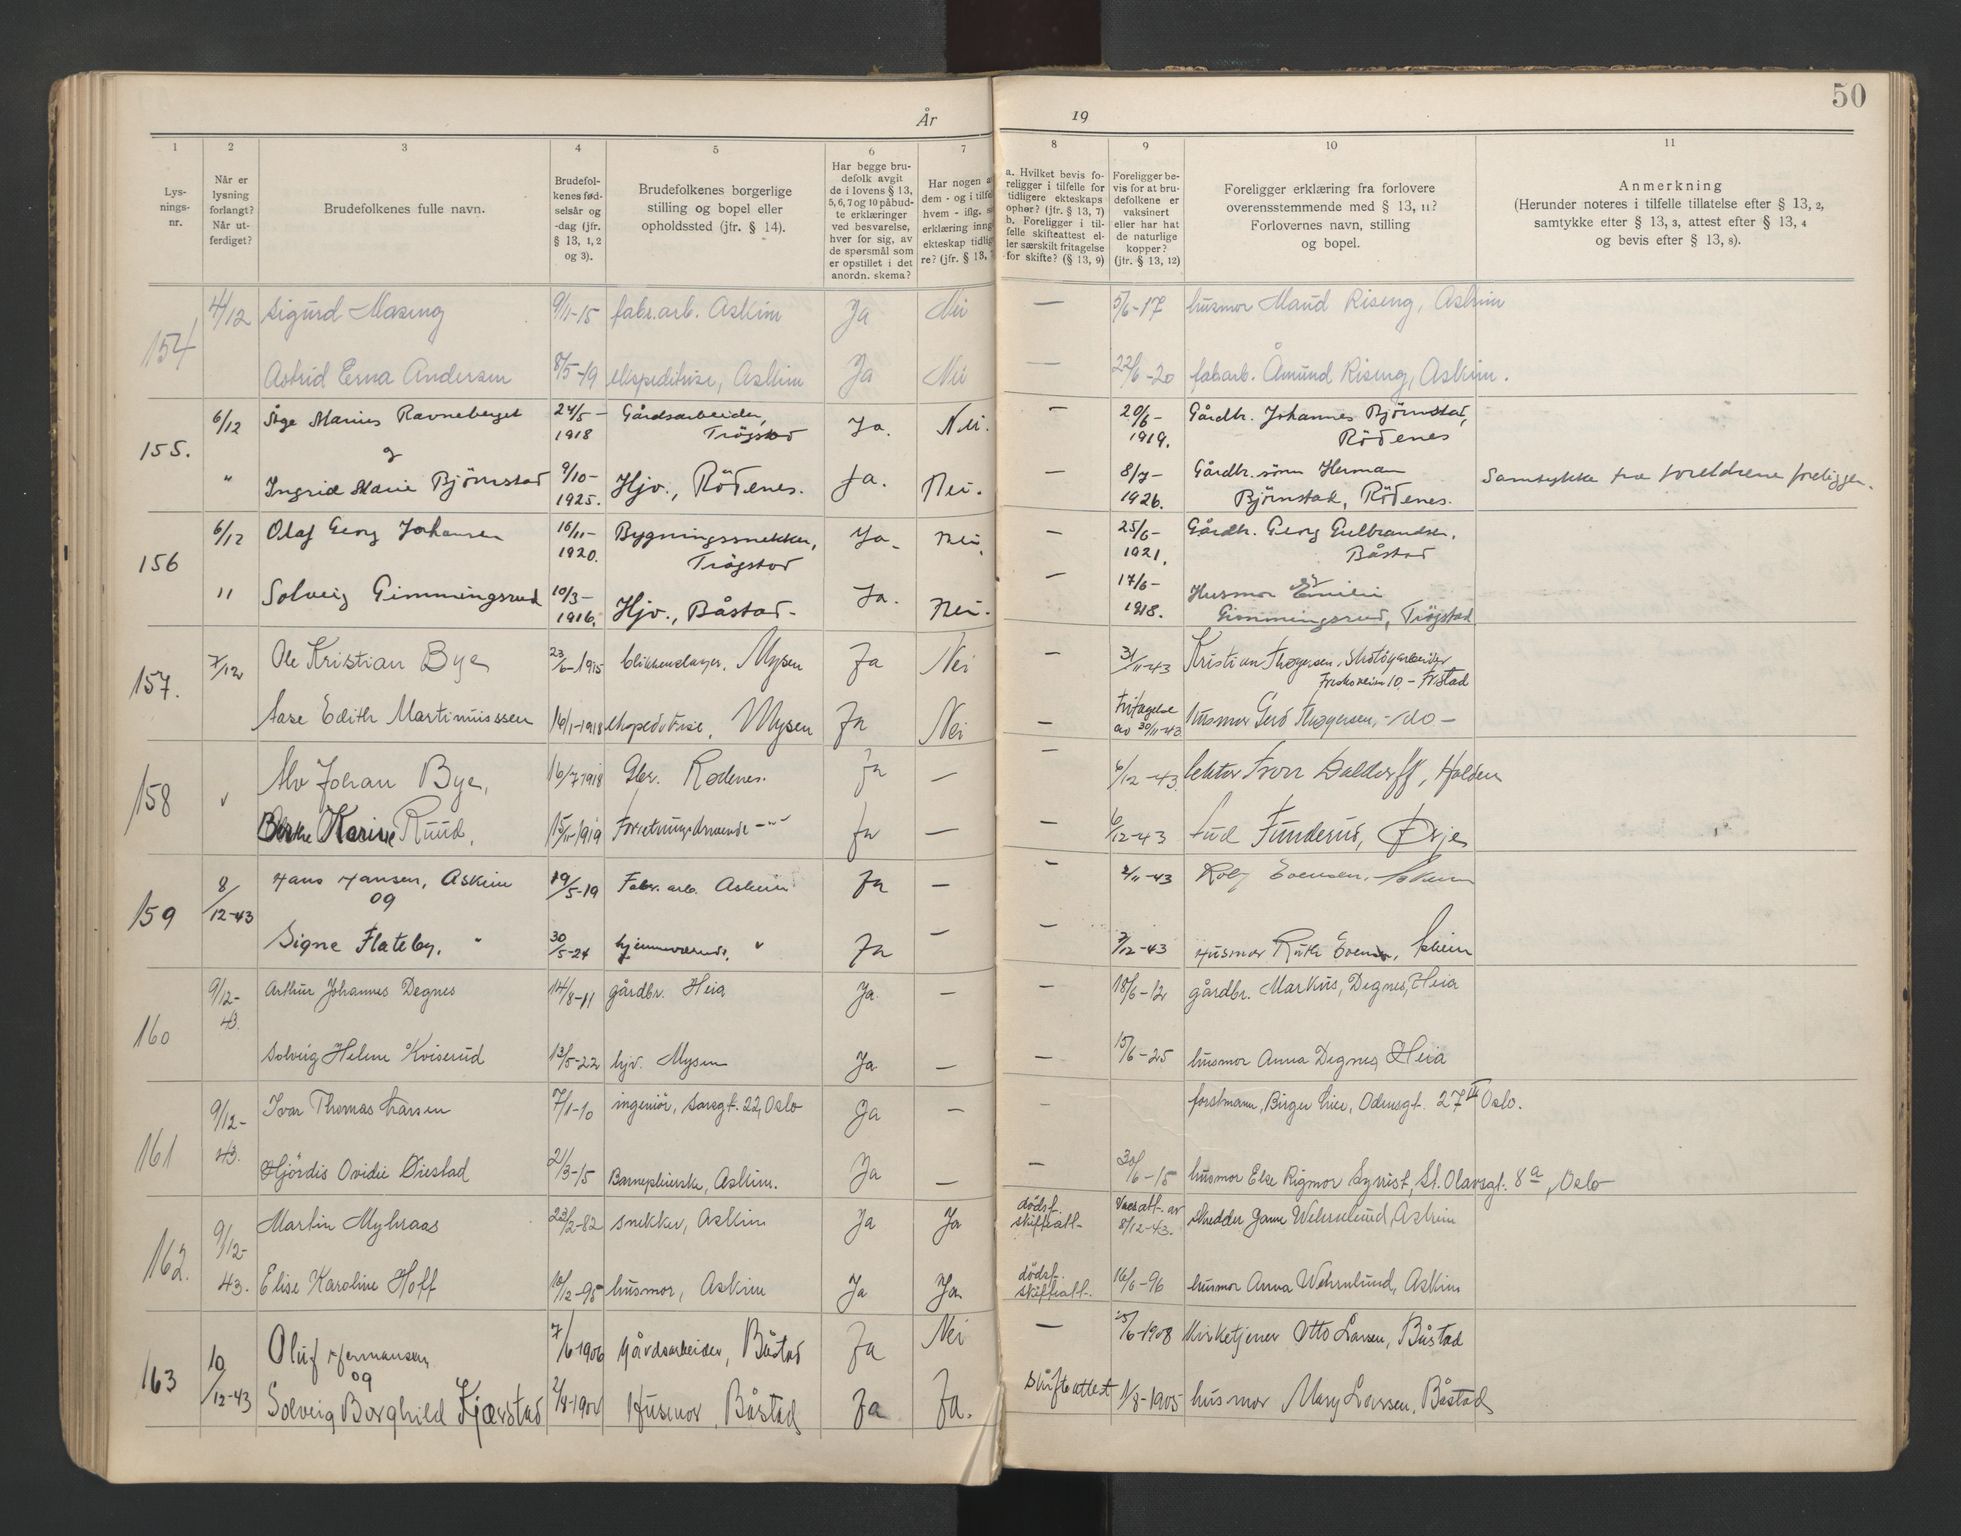 50
År
19
1 2 3 4 5 6 7 8 9 10 11
Lys-
nings-
nr.
Når er
lysning
forlangt?
Når ut-
ferdiget?
Brudefolkenes fulle navn.
Brudefol-
kenes fød-
selsår og
-dag (jfr.
§ 13, 1, 2
og 3).
Brudefolkenes borgerlige
stilling og bopel eller
opholdssted (jfr. § 14).
Har begge bru-
defolk avgit
de i lovens § 13,
5, 6, 7 og 10 påbud-
te erklæringer
ved besvarelse,
hver for sig, av
de spørsmål som
er opstillet i det
anordn. skema?
Har nogen a
dem - og i tilfel
hvem - iflg. s
erklæring inng
ekteskap tidlig
re? (jfr. § 13, 7
a. Hvilket bevis fo-
religger i tilfelle for
tidligere ekteskaps
ophør? (jfr. § 13, 7)
b. Foreligger i til-
felle skifteattest el-
ler særskilt fritagelse
for skifte? (§ 13, 9)
Foreligger be-
vis for at bru-
defolkene er
vaksinert
eller har hat
de naturlige
kopper?
(jfr. § 13, 12)
Foreligger erklæring fra forlovere
overensstemmende med § 13, 11?
Forlovernes navn, stilling
og bopel.
Anmerkning
(Herunder noteres i tilfelle tillatelse efter § 13, 2,
samtykke efter § 13, 3, attest efter § 13, 4
og bevis efter § 13, 8).
154 4/12 Sigurd Masing 9/1-15 fabr.arb. Askim Ja Nei — 5/6-17 husmor Maud Riseng, Askim
Astrid Erna Andersen 8/5-19 ekspeditrise, Askim Ja Nei — 22/6-20 fabarb. Åmund Riseng, Askim.
155. 6/12 Åge Marius Ravneberget 24/5-1918 Gårdsarbeider, Trøgstad Ja. Nei. — 20/6-1919. Gårdbr. Johannes Bjørnstad, Rödenes
og
" Ingrid Marie Bjørnstad 9/10-1925. Hjv., Rödenes. Ja. Nei. — 8/7-1926. Gårdbr. sønn Herman Bjørnstad, Rödenes. Samtykke fra foreldrene foreligger.
156 6/12 Olaf Georg Johansen 16/11-1920. Bygningssnekker, Trøgstad Ja. Nei. — 25/6-1921. Gårdbr. Georg Gulbrandsen, Båstad
" Solveig Gimmingsrud 10/3-1916. Hjv., Båstad. Ja. Nei. — 17/6-1918. Husmor Emilie Gimmingsrud, Trøgstad
157. 7/12 Ole Kristian Bye 23/6-1915 blikkenslager, Mysen Ja Nei — 31/11-43 Kristian Thøgersen, Skotøyarbeider 10, - Fr.stad
Aase Edith Martinuissen 16/1-1918 ekspeditrise, Mysen Ja Nei — Fritagelse av 30/11-43 husmor Gerd Thøgersen, -do-
158 " Alv Johan Bye, 16/7 1918 Gbr. Rødenes. Ja — — 6/12-43. lektor Tron Daldorff, Halden
Karine Ruud, 15/11-1919 Forretningsdrivende -"- Ja — 6/12-43 Funderud, Ørje
159 8/12-43 Hans Hansen, Askim 19/5-19 Fabr. arb. Askim Ja — — 2/11-43 Rolf Evensen, Askim
og
Signe Flateby, " 30/5-24 hjemmeværende, " Ja — — 7/12-43 Husmor Ruth Evensen, Askim
160 9/12-43. Arthur Johannes Degnes 14/8-11 gårdbr. Heia Ja — — 18/6-12 gårdbr. Markus Degnes, Heia
Solveig Helene Kviserud 13/5-22 hjv. Mysen Ja — — 15/6-25 husmor Anna Degnes, Heia
161 9/12-43. Ivar Thomas Larsen 7/1-10 ingeniør, Sarsgt. 22, Oslo Ja — — forstmann, Birger Lier, Odensgt. 27 III Oslo.
Hjördis Ovidie Øiestad 21/3-15 Barnepleierske, Askim. Ja — — 30/6-15 husmor Else Rigmor Syvrist, St. Olavsgt. 8a, Oslo
162. 9/12-43. Martin Myhraas 23/2-82 snekker, Askim Ja Ja dödsf. skifteatt. Vaks.att. av 8/12-43. skredder Wehrnlund, Askim
Elise Karoline Hoff 10/12-95 husmor, Askim Ja Ja dödsf. skifteatt. 16/6-96 husmor Anna Wehrnlund, Askim
163 10/12-43 Oluf Hermansen 7/6-1906 Gårdsarbeider, Båstad Ja Nei — 25/6-1908 Kirketjener Otto Larsen, Båstad
og
Solveig Borghild Kjærstad Husmor, Båstad Ja Ja. Skifteattest 1/8-1905 husmor Mary Larsen, Båstad